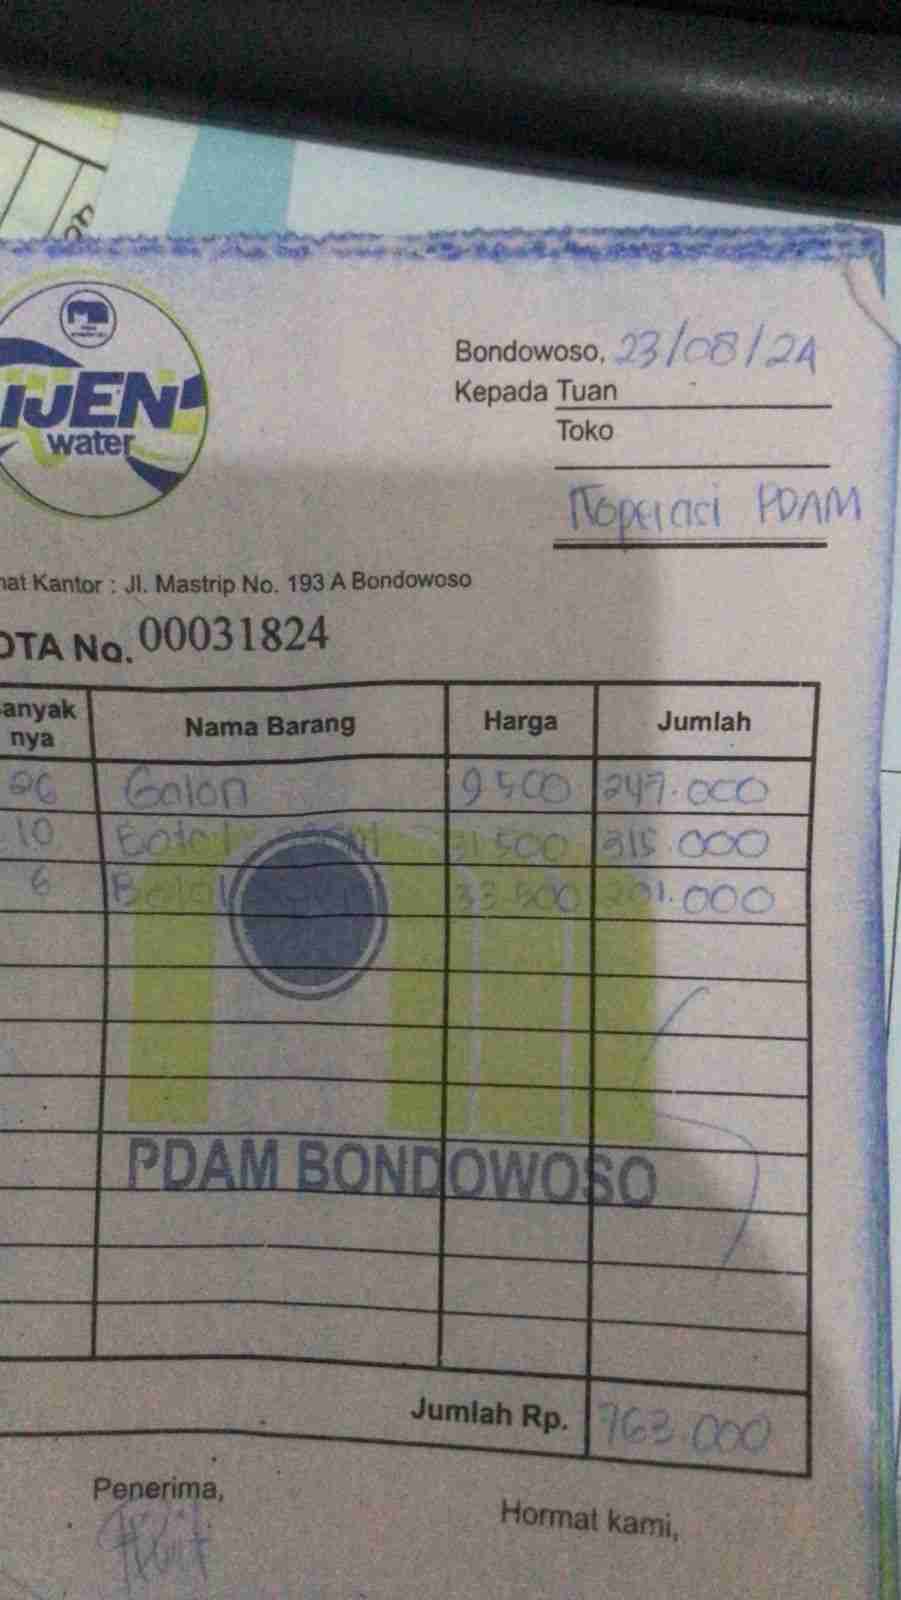 IJEN
water
Bondowoso, 23/08/24
Kepada Tuan
Toko
Koperasi PDAM
mat Kantor : Jl. Mastrip No. 193 A Bondowoso
OTA No. 00031824
anyak nya Nama Barang Harga Jumlah
26 Galon 9500 247.000
10 Botol ml 31.500 315.000
6 Botol 33.500 201.000
PDAM BONDOWOSO
Jumlah Rp. 763.000
Penerima,
Hormat kami,